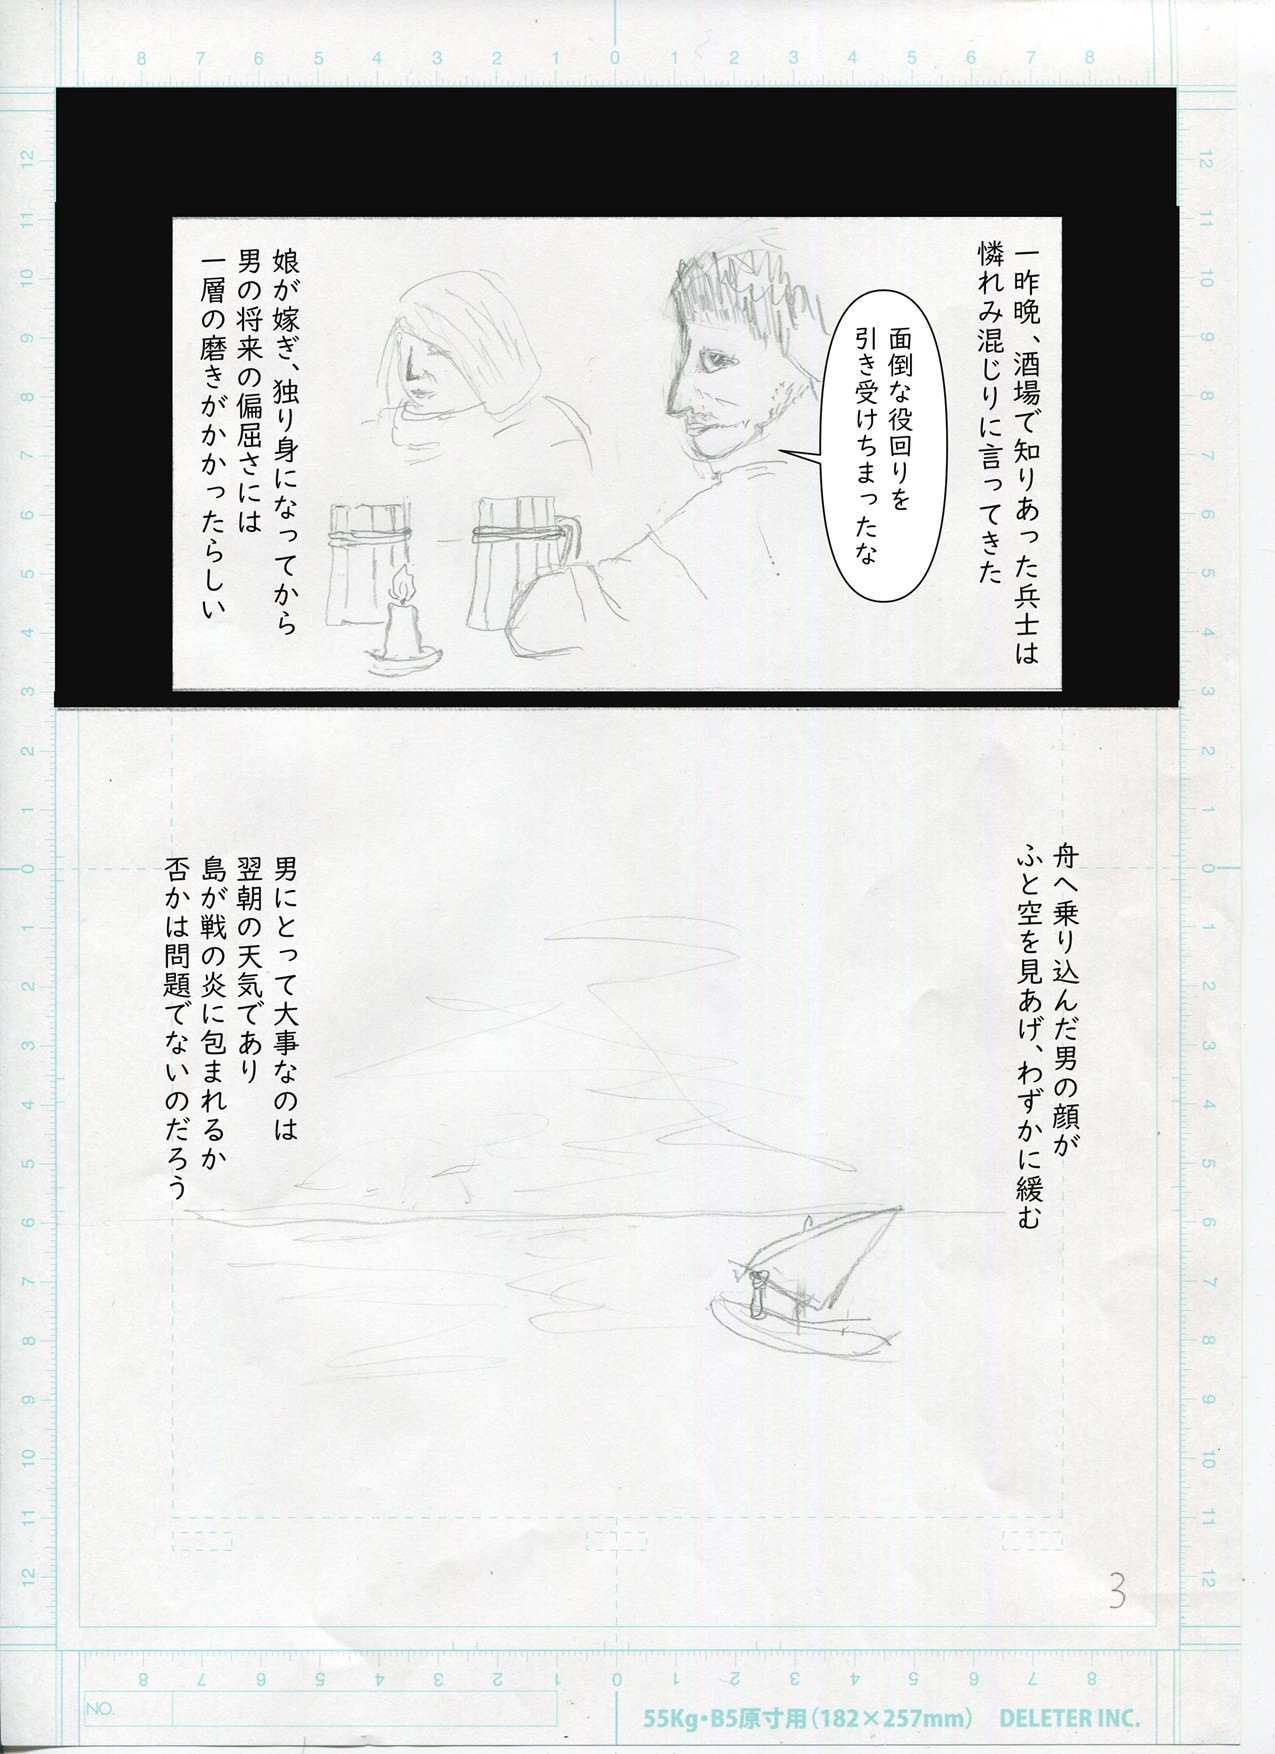 一昨晩、酒場で知りあった兵士は
憐れみ混じりに言ってきた
面倒な役回りを
引き受けちまったな
娘が嫁ぎ、独り身になってから
男の将来の偏屈さには
一層の磨きがかかったらしい
舟へ乗り込んだ男の顔が
ふと空を見あげ、わずかに緩む
男にとって大事なのは
翌朝の天気であり
島が戦の炎に包まれるか
否かは問題でないのだろう
3
NO.
55Kg・B5原寸用(182×257mm) DELETER INC.